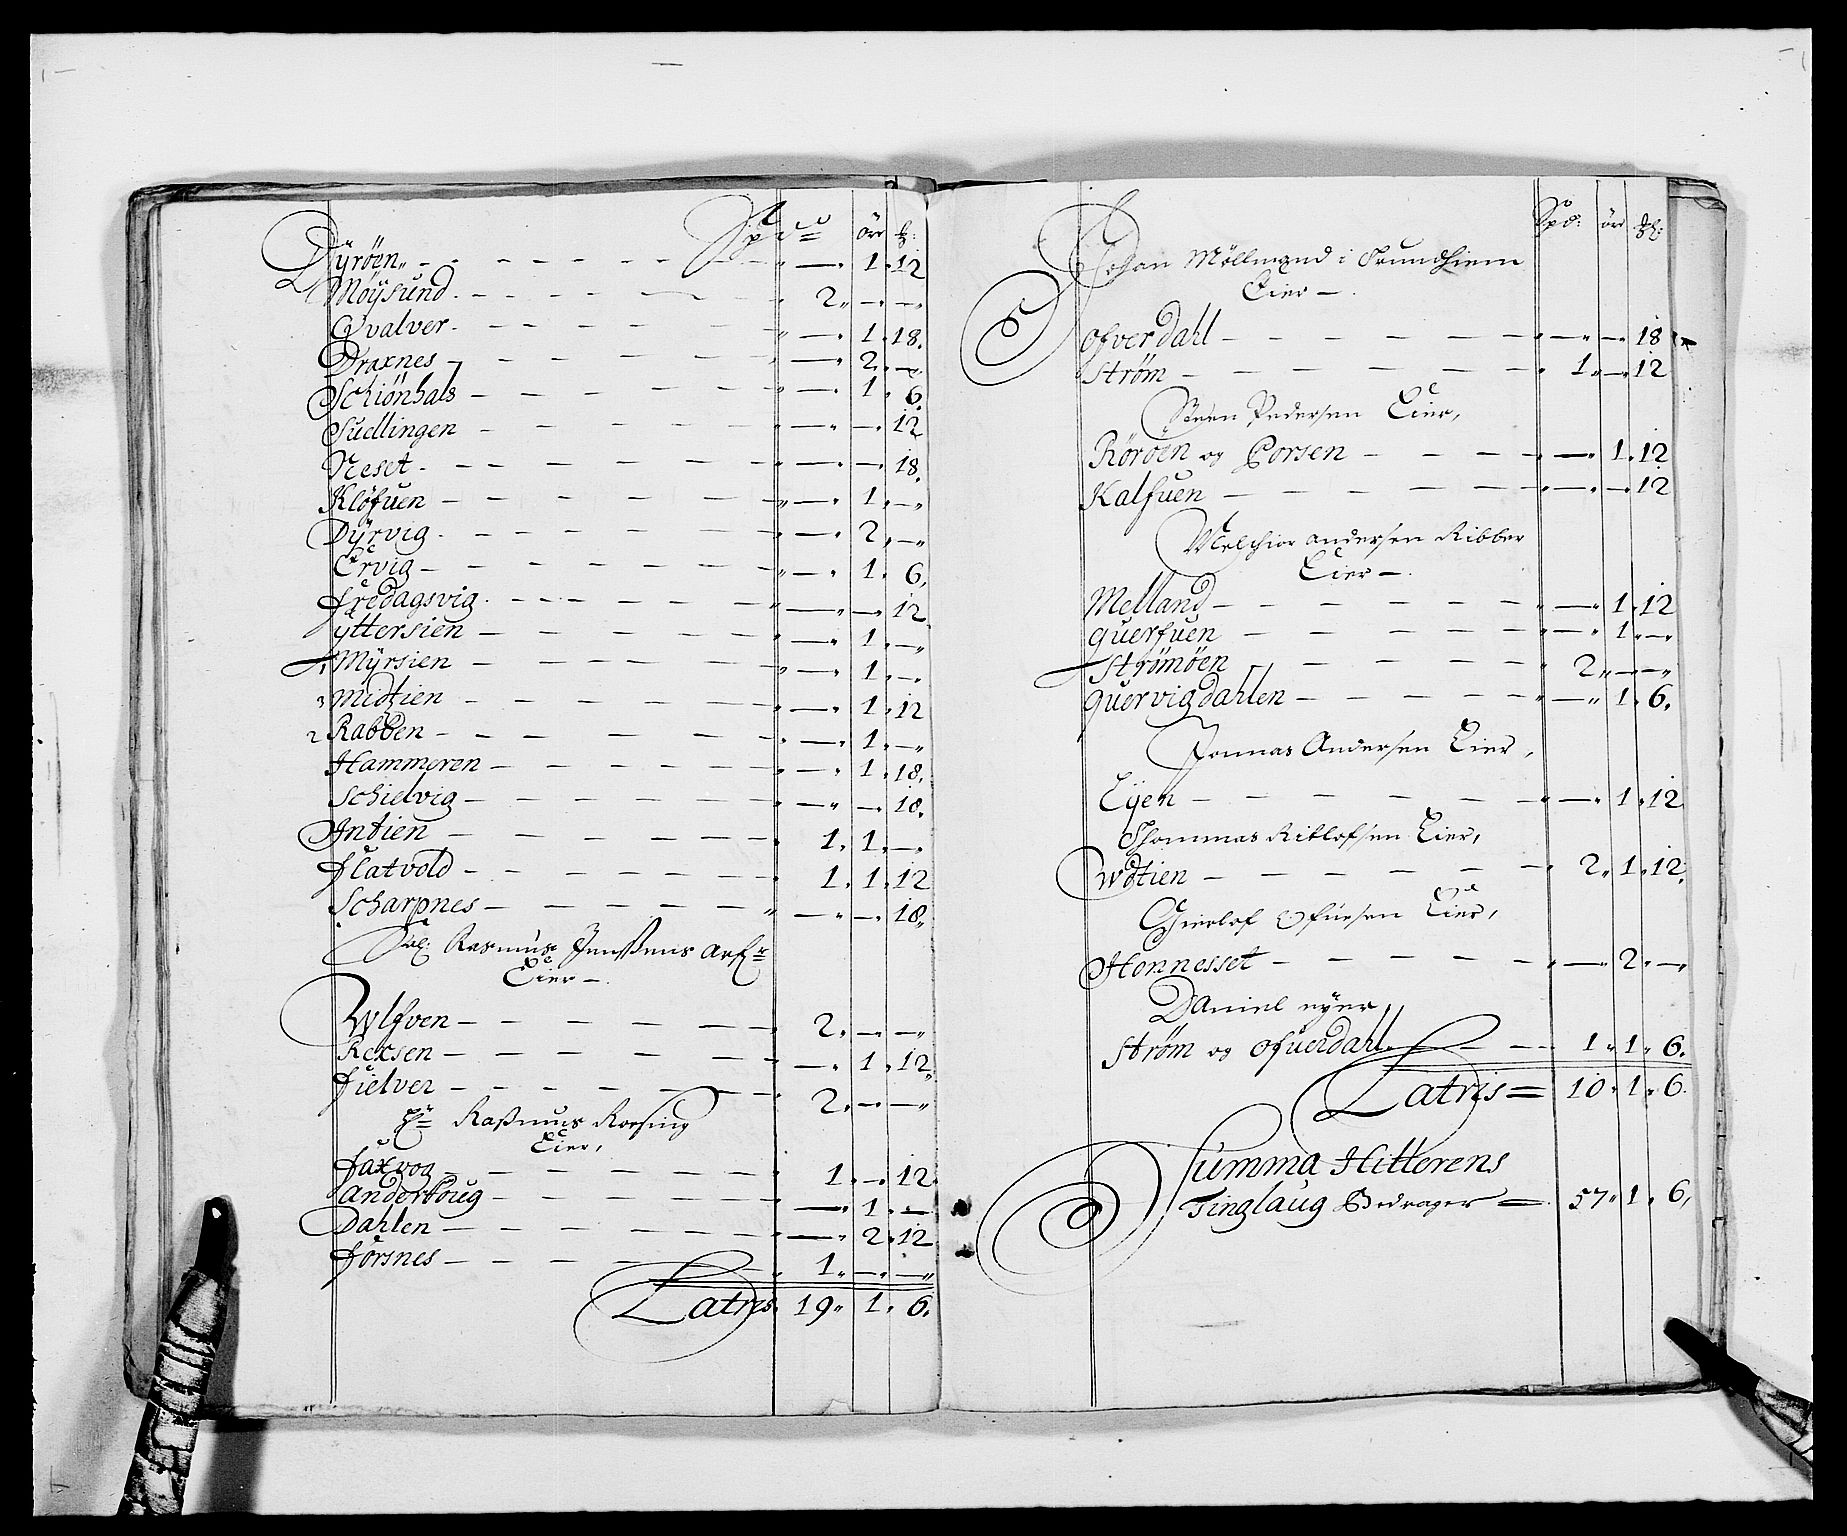 Spd öre ℔:
Dyröen „ — 1 „ 12
Moÿsund. 2 „ — „ —
Qvalver. „ — 1 . 18.
Draxnes „ — 2 „ —
Schiönhals „ — 1 . 6.
Sudlingen „ — „ — 12
Neset. „ — „ — 18.
Klöfuen „ — 1 „ —
Dÿrvig. „ — 2 „ —
Ervig „ — 1 . 6,
Fredagsvig. „ — „ — 12
ÿttersien „ — 1 „ —
1 Mÿrsien „ — 1 „ —
3 Midtien „ — 1 . 12
2 Rabben „ — 1 „ —
Hammeren „ — 1 . 18.
Schielvig „ — „ — 18.
Indien 1 . 1 „ —
Flatvold 1 . 1 . 12
Scharpnes „ — „ — 18„
Sal: Rasmus Jenssens arf:
Eier —.
Wlfven 2 „ — „ —
Rexsen — 1 . 12„
Fielver 2 „ — „ —
Hr Rasmus Roesing
Eier,
Faxvog 1 „ — 12
anderskoug — 1 . —
Dahlen — „ 2 „ 12
Forsnes 1 „ — „ —
Latris. 19 „ 1 „ 6.
Spd: öre ℔:
Johan Möllmand i Trundhiem
Eier —.
ofverdahl „ — „ — 18
Strøm 1 „ — 12
Steen Pedersen Eier,
Röröen og Porsen „ — 1 . 12
Kalfuen „ — „ — 12
Melchior andersen Ribber
Eier —.
Melland „ — „ 1 . 12
querfuen „ — „ 1 „ —
Strömöen „ 2 „ — „ —
quervigdahlen „ — „ 1 . 6.
Jonnas Andersen Eier,
Eÿen „ — „ 1 . 12
Thommas Ritlofsen Eier,
Wdtien 2 „ 1 . 12.
Gierlof Ofuesen Eier,
Honnesset „ — „ 2 „ —
Daniel nÿer,
Strøm og ofuerdahl. 1 „ 1 „ 6.
Latris = 10 „ 1 „ 6.
Summa Hitterens
Tinglaug Bedrager = 57 „ 1 „ 6,